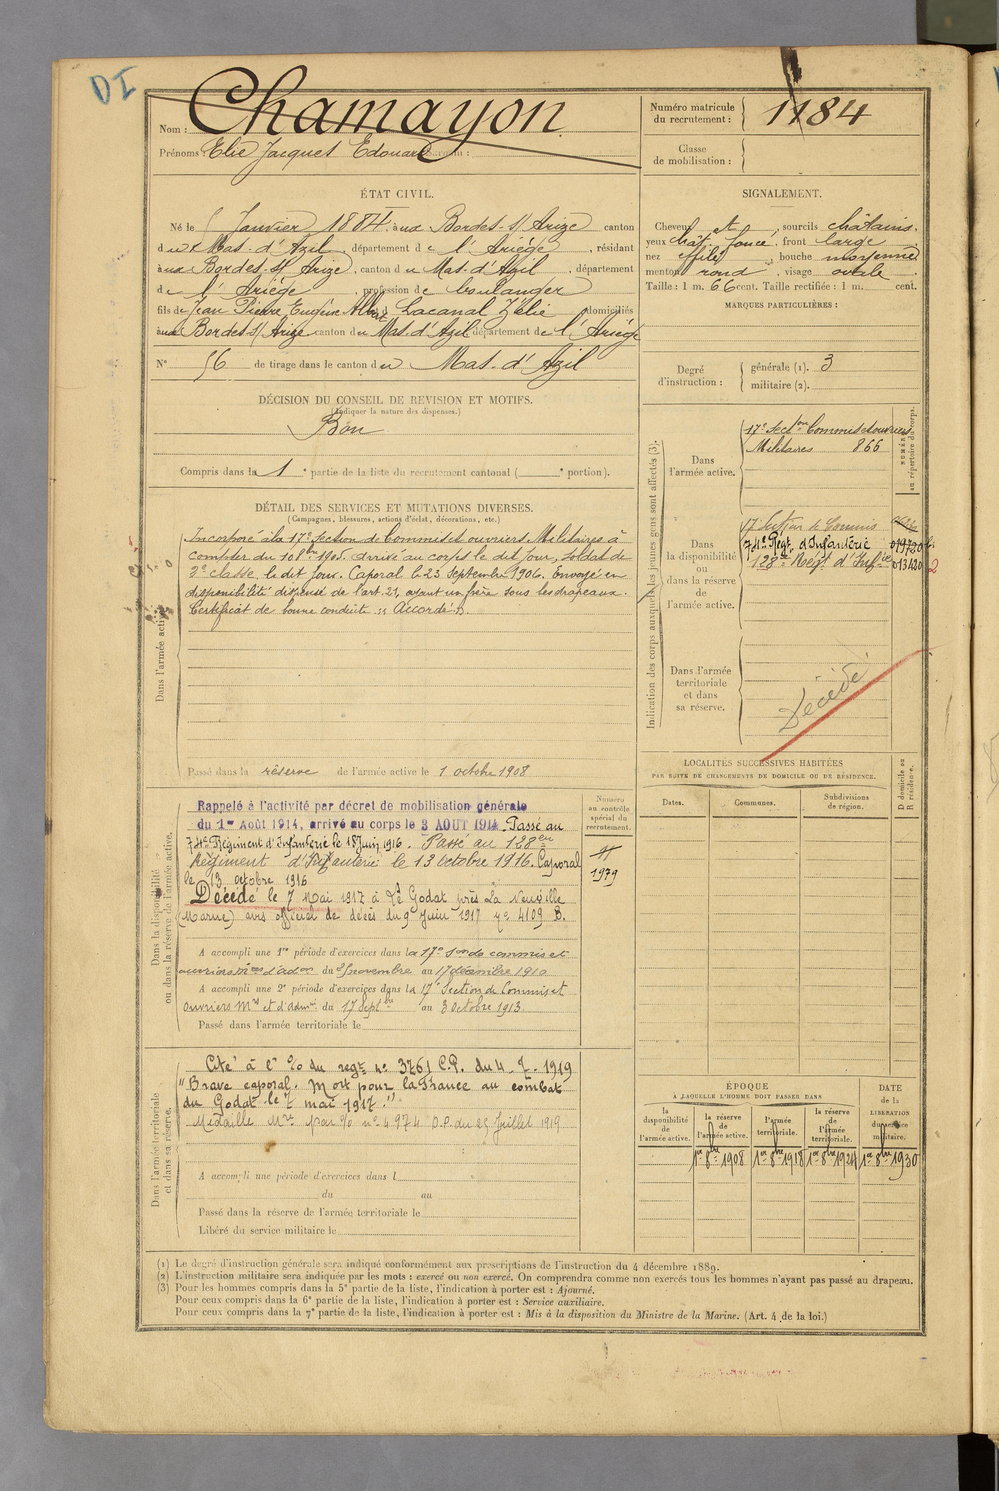 DI
Nom : Chamayou
Prénoms : Elie Jacques Edouard
Numéro matricule du recrutement : 1184
Classe de mobilisation :
ÉTAT CIVIL.
Né le 5 Janvier 1884, à ux Bordes-s/ Arize canton
du Mas-d'Azil, département de l'Ariège, résidant
à ux Bordes-s/ Arize, canton du Mas-d'Azil, département
de l'Ariège, profession de boulanger
fils de Jean Pierre Eugène Albert et de Lacanal Zélie domiciliés
à ux Bordes s/ Arize, canton du Mas-d'Azil département de l'Ariège
N° 56 de tirage dans le canton du Mas-d'Azil
SIGNALEMENT.
Cheveux et sourcils châtains
yeux chât. foncé, front large
nez effilé, bouche moyenne
menton rond, visage ovale
Taille : 1 m. 66 cent. Taille rectifiée : 1 m. cent.
MARQUES PARTICULIÈRES :
Degré d'instruction : générale (1). 3
militaire (2).
DÉCISION DU CONSEIL DE REVISION ET MOTIFS.
(Indiquer la nature des dispenses.)
Bon
Compris dans la 1e partie de la liste du recrutement cantonal ( e portion).
DÉTAIL DES SERVICES ET MUTATIONS DIVERSES.
(Campagnes, blessures, actions d'éclat, décorations, etc.)
Dans l'armée active.
Incorporé à la 17e Section de Commis et ouvriers Militaires à
compter du 10 8bre 1905. arrivé au corps le dit jour, soldat de
2e classe, le dit jour. Caporal le 23 Septembre 1906. Envoyé en
disponibilité dispensé de l'art. 21, ayant un frère sous les drapeaux.
Certificat de bonne conduite " Accordé".
Passé dans la réserve de l'armée active le 1 octobre 1908
Indication des corps auxquels les jeunes gens sont affectés (3).
NUMÉRO au répertoire du corps.
Dans l'armée active.
17e Section Commis et ouvriers
Militaires 866
Dans la disponibilité ou dans la réserve de l'armée active.
17 Section de Commis
74e Régt d'Infanterie 019730
128e Régt d'Infie 013420
Dans l'armée territoriale et dans sa réserve.
Décédé
LOCALITÉS SUCCESSIVES HABITÉES
PAR SUITE DE CHANGEMENTS DE DOMICILE OU DE RÉSIDENCE.
Dates. Communes. Subdivisions de région. D domicile ou R résidence.
Dans la disponibilité ou dans la réserve de l'armée active.
Numéro au contrôle spécial du recrutement.
1979
Rappelé à l'activité par décret de mobilisation générale
du 1er Août 1914, arrivé au corps le 3 AOUT 1914. Passé au
74e Régiment d'Infanterie le 18 Juin 1916. Passé au 128ème
Régiment d'Infanterie le 13 Octobre 1916. Caporal
le 13 octobre 1916
Décédé le 7 Mai 1917 à Le Godat près La Neuville
(Marne) avis officiel de décès du 9 Juin 1917 n° 4109 B.
A accompli une 1re période d'exercices dans la 17e Son de commis et
ouvriers mres d'adon du novembre au 17 décembre 1910
A accompli une 2e période d'exercices dans la 17e Section de Commis et
ouvriers Mres et d'admon du 17 Septbre au 3 Octobre 1913.
Passé dans l'armée territoriale le
Dans l'armée territoriale et dans sa réserve.
Cité à l'o/o du regt n° 3761 C.P. du 4-7-1919
"Brave caporal. Mort pour la France au combat
du Godat le 7 mai 1917."
Médaille Mre par % n° 4974 O.P. du 25 Juillet 1919
A accompli une période d'exercices dans l
du au
Passé dans la réserve de l'armée territoriale le
Libéré du service militaire le
ÉPOQUE
À LAQUELLE L'HOMME DOIT PASSER DANS
DATE de la LIBÉRATION du service militaire.
la disponibilité de l'armée active. la réserve de l'armée active. l'armée territoriale. la réserve de l'armée territoriale.
1er 8bre 1908 1er 8bre 1918 1er 8bre 1924 1er 8bre 1930
(1) Le degré d'instruction générale sera indiqué conformément aux prescriptions de l'instruction du 4 décembre 1889.
(2) L'instruction militaire sera indiquée par les mots : exercé ou non exercé. On comprendra comme non exercés tous les hommes n'ayant pas passé au drapeau.
(3) Pour les hommes compris dans la 5e partie de la liste, l'indication à porter est : Ajourné.
Pour ceux compris dans la 6e partie de la liste, l'indication à porter est : Service auxiliaire.
Pour ceux compris dans la 7e partie de la liste, l'indication à porter est : Mis à la disposition du Ministre de la Marine. (Art. 4 de la loi.)